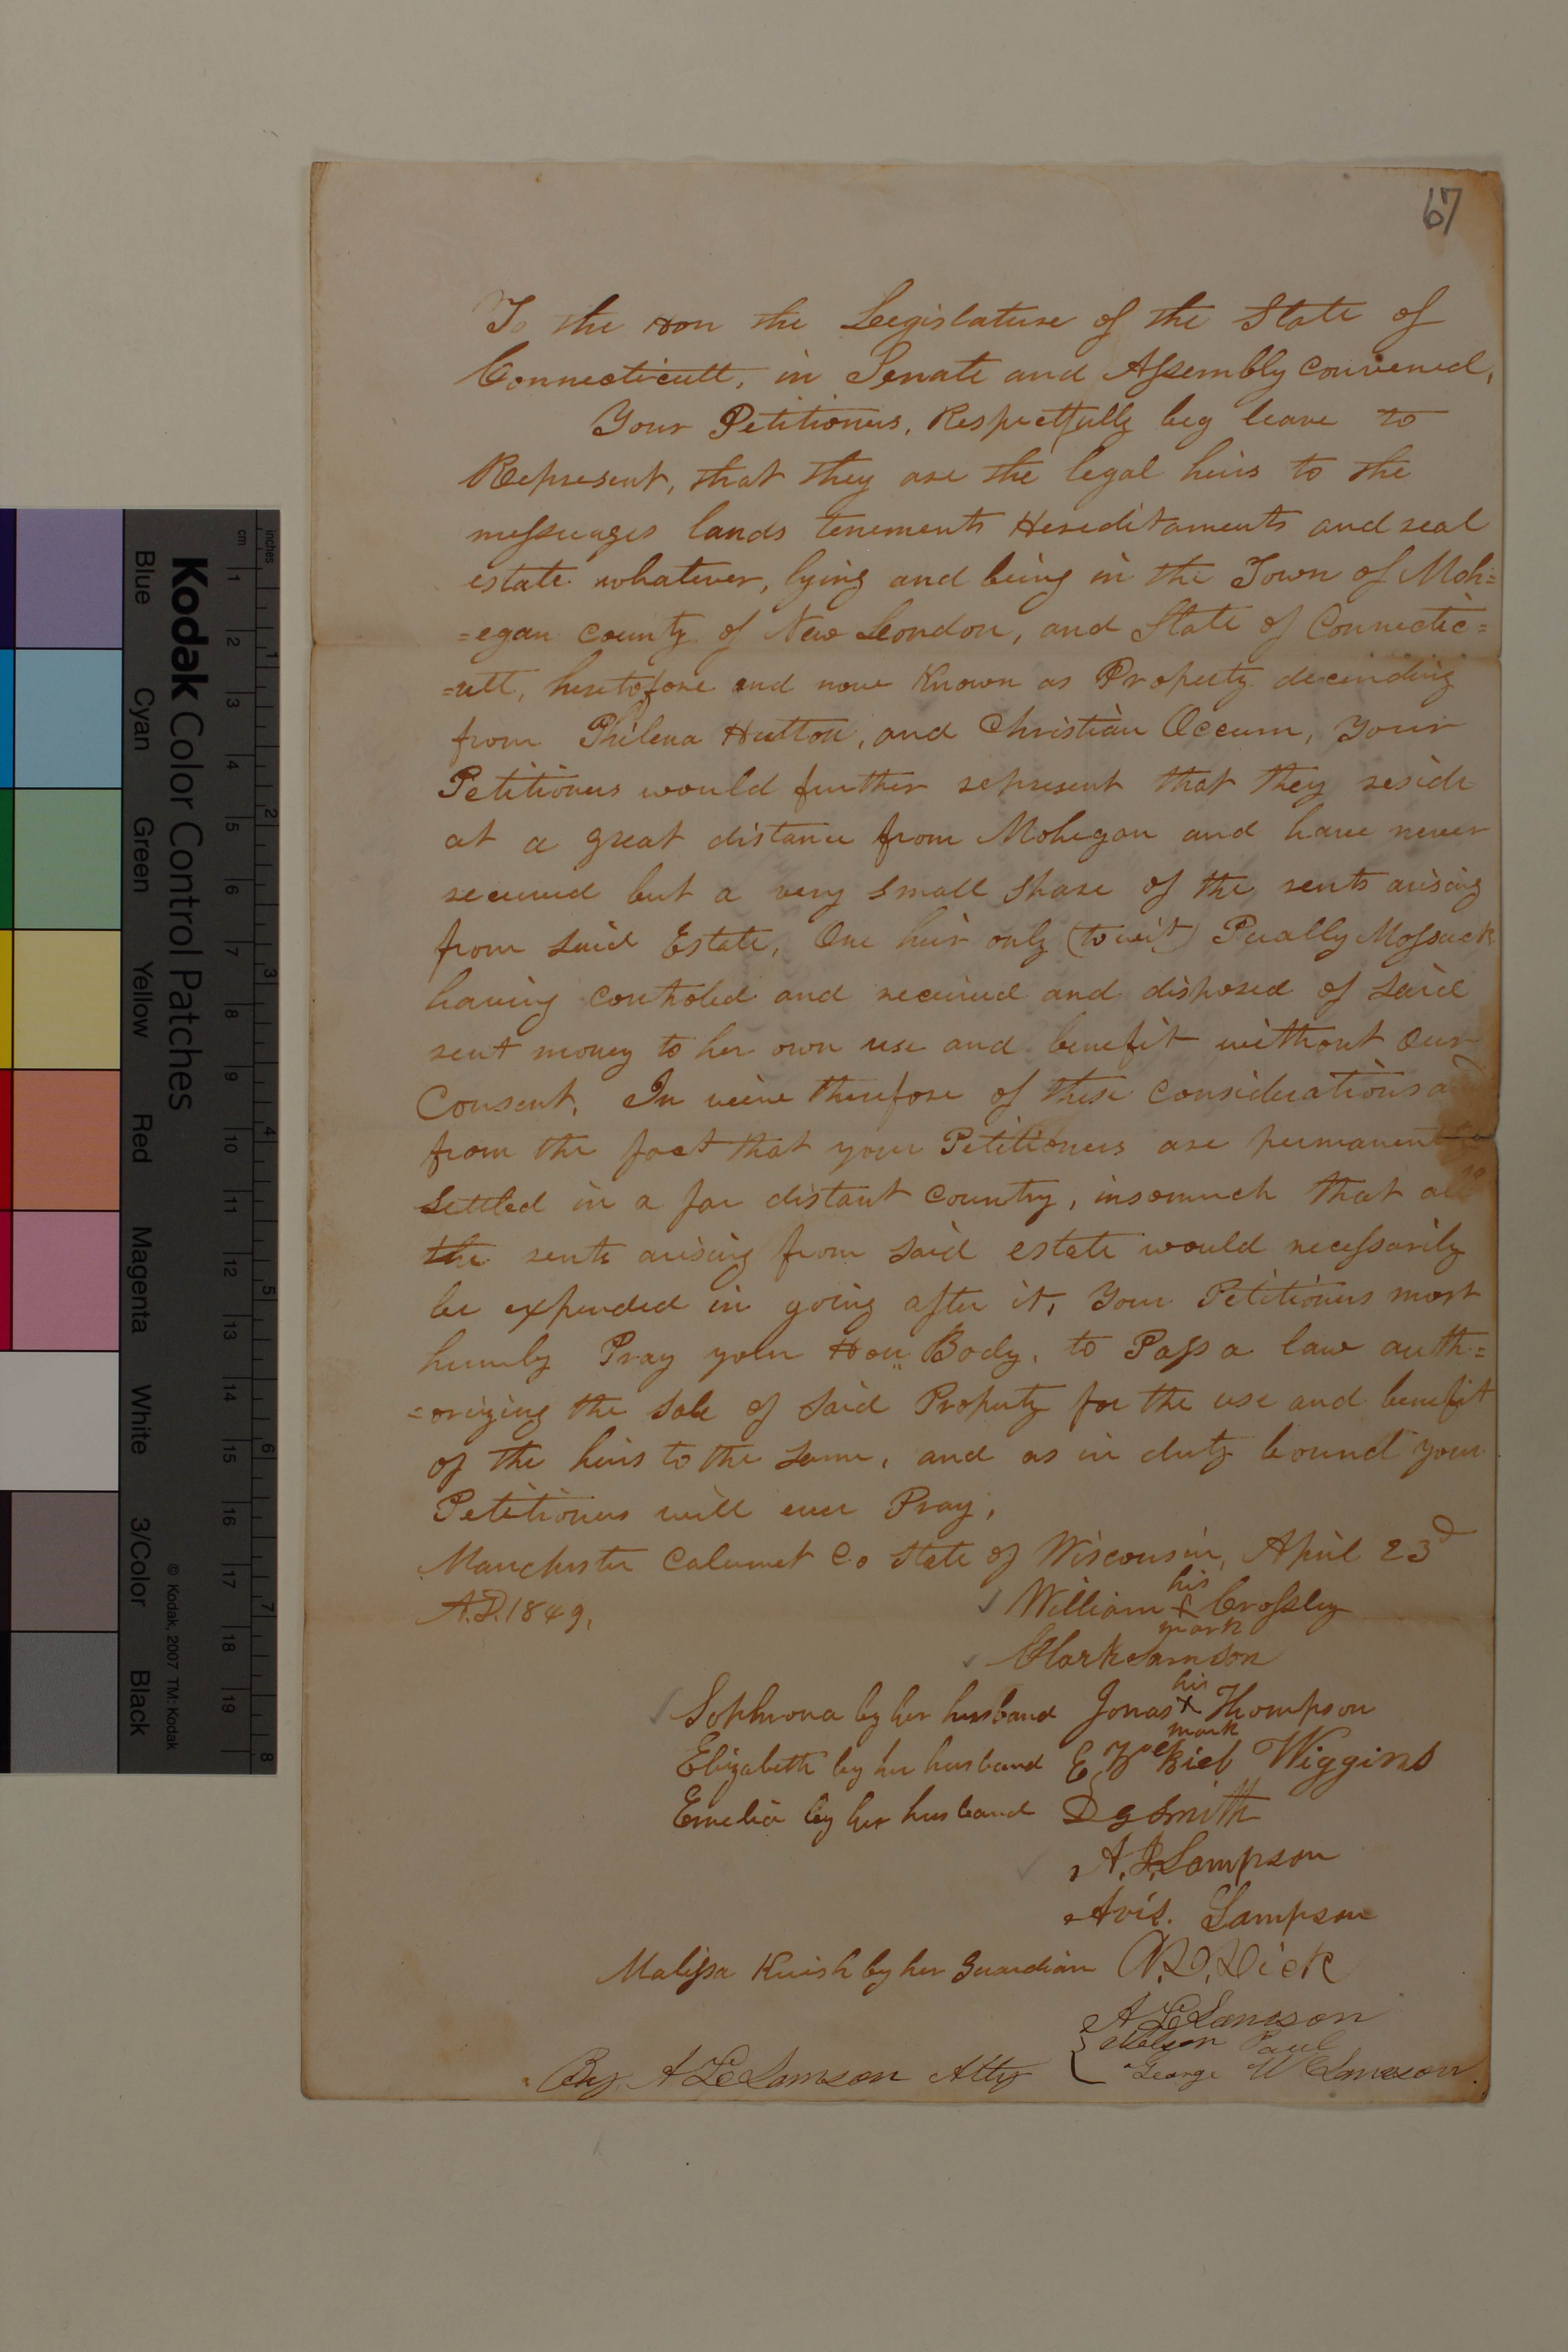 67
To the Hon the Legislature of the State of
Connecticutt, in Senate and Assembly Convened,
Your Petitioners, Respectfully beg leave to
Represent, that they are the legal heirs to the
messuages lands tenements Hereditaments and real
estate whatever, lying and being in the Town of Moh=
=egan county of New London, and State of Connectic=
=utt, heretofore and now Known as Property decending
from Philena Hutton, and Christian Occum, Your
Petitioners would further represent that they reside
at a great distance from Mohegan and have never
received but a very small share of the rents arising
from said Estate, One heir only (to wit) Pually Mossuck
having controled and received and disposed of said
rent money to her own use and benefit without Our
Consent, In veiw therefore of these considerations a
from the fact that your Petitioners are permanent
settled in a far distant country, insomuch that all
the rents arising from said estate would necessarily
be expended in going after it, Your Petitioners most
humbly Pray your Hon,, Body, to Pass a law auth=
=orizing the sale of said Property for the use and benefit
of the heirs to the same, and as in duty bound your
Petitioners will ever Pray,
Manchester Calumet Co State of Wisconsin, April 23d
A.D. 1849,
William his x mark Crossley
Clark Samson
Sophrona by her husband Jonas his x mark Thompson
Elizabeth by her husband E Zeekiel Wiggins
Emelia by her husband D G Smith
A. J. Sampson
Avis. Sampson
Malissa Kuish by her Guardian W. D. Dick
A L Samson
Nelson Paul
George W Samson
By A L Samson Atty
inches
cm
1 2 3 4 5 6 7 8
1 2 3 4 5 6 7 8 9 10 11 12 13 14 15 16 17 18 19
Kodak Color Control Patches
© Kodak, 2007 TM: Kodak
Blue Cyan Green Yellow Red Magenta White 3/Color Black